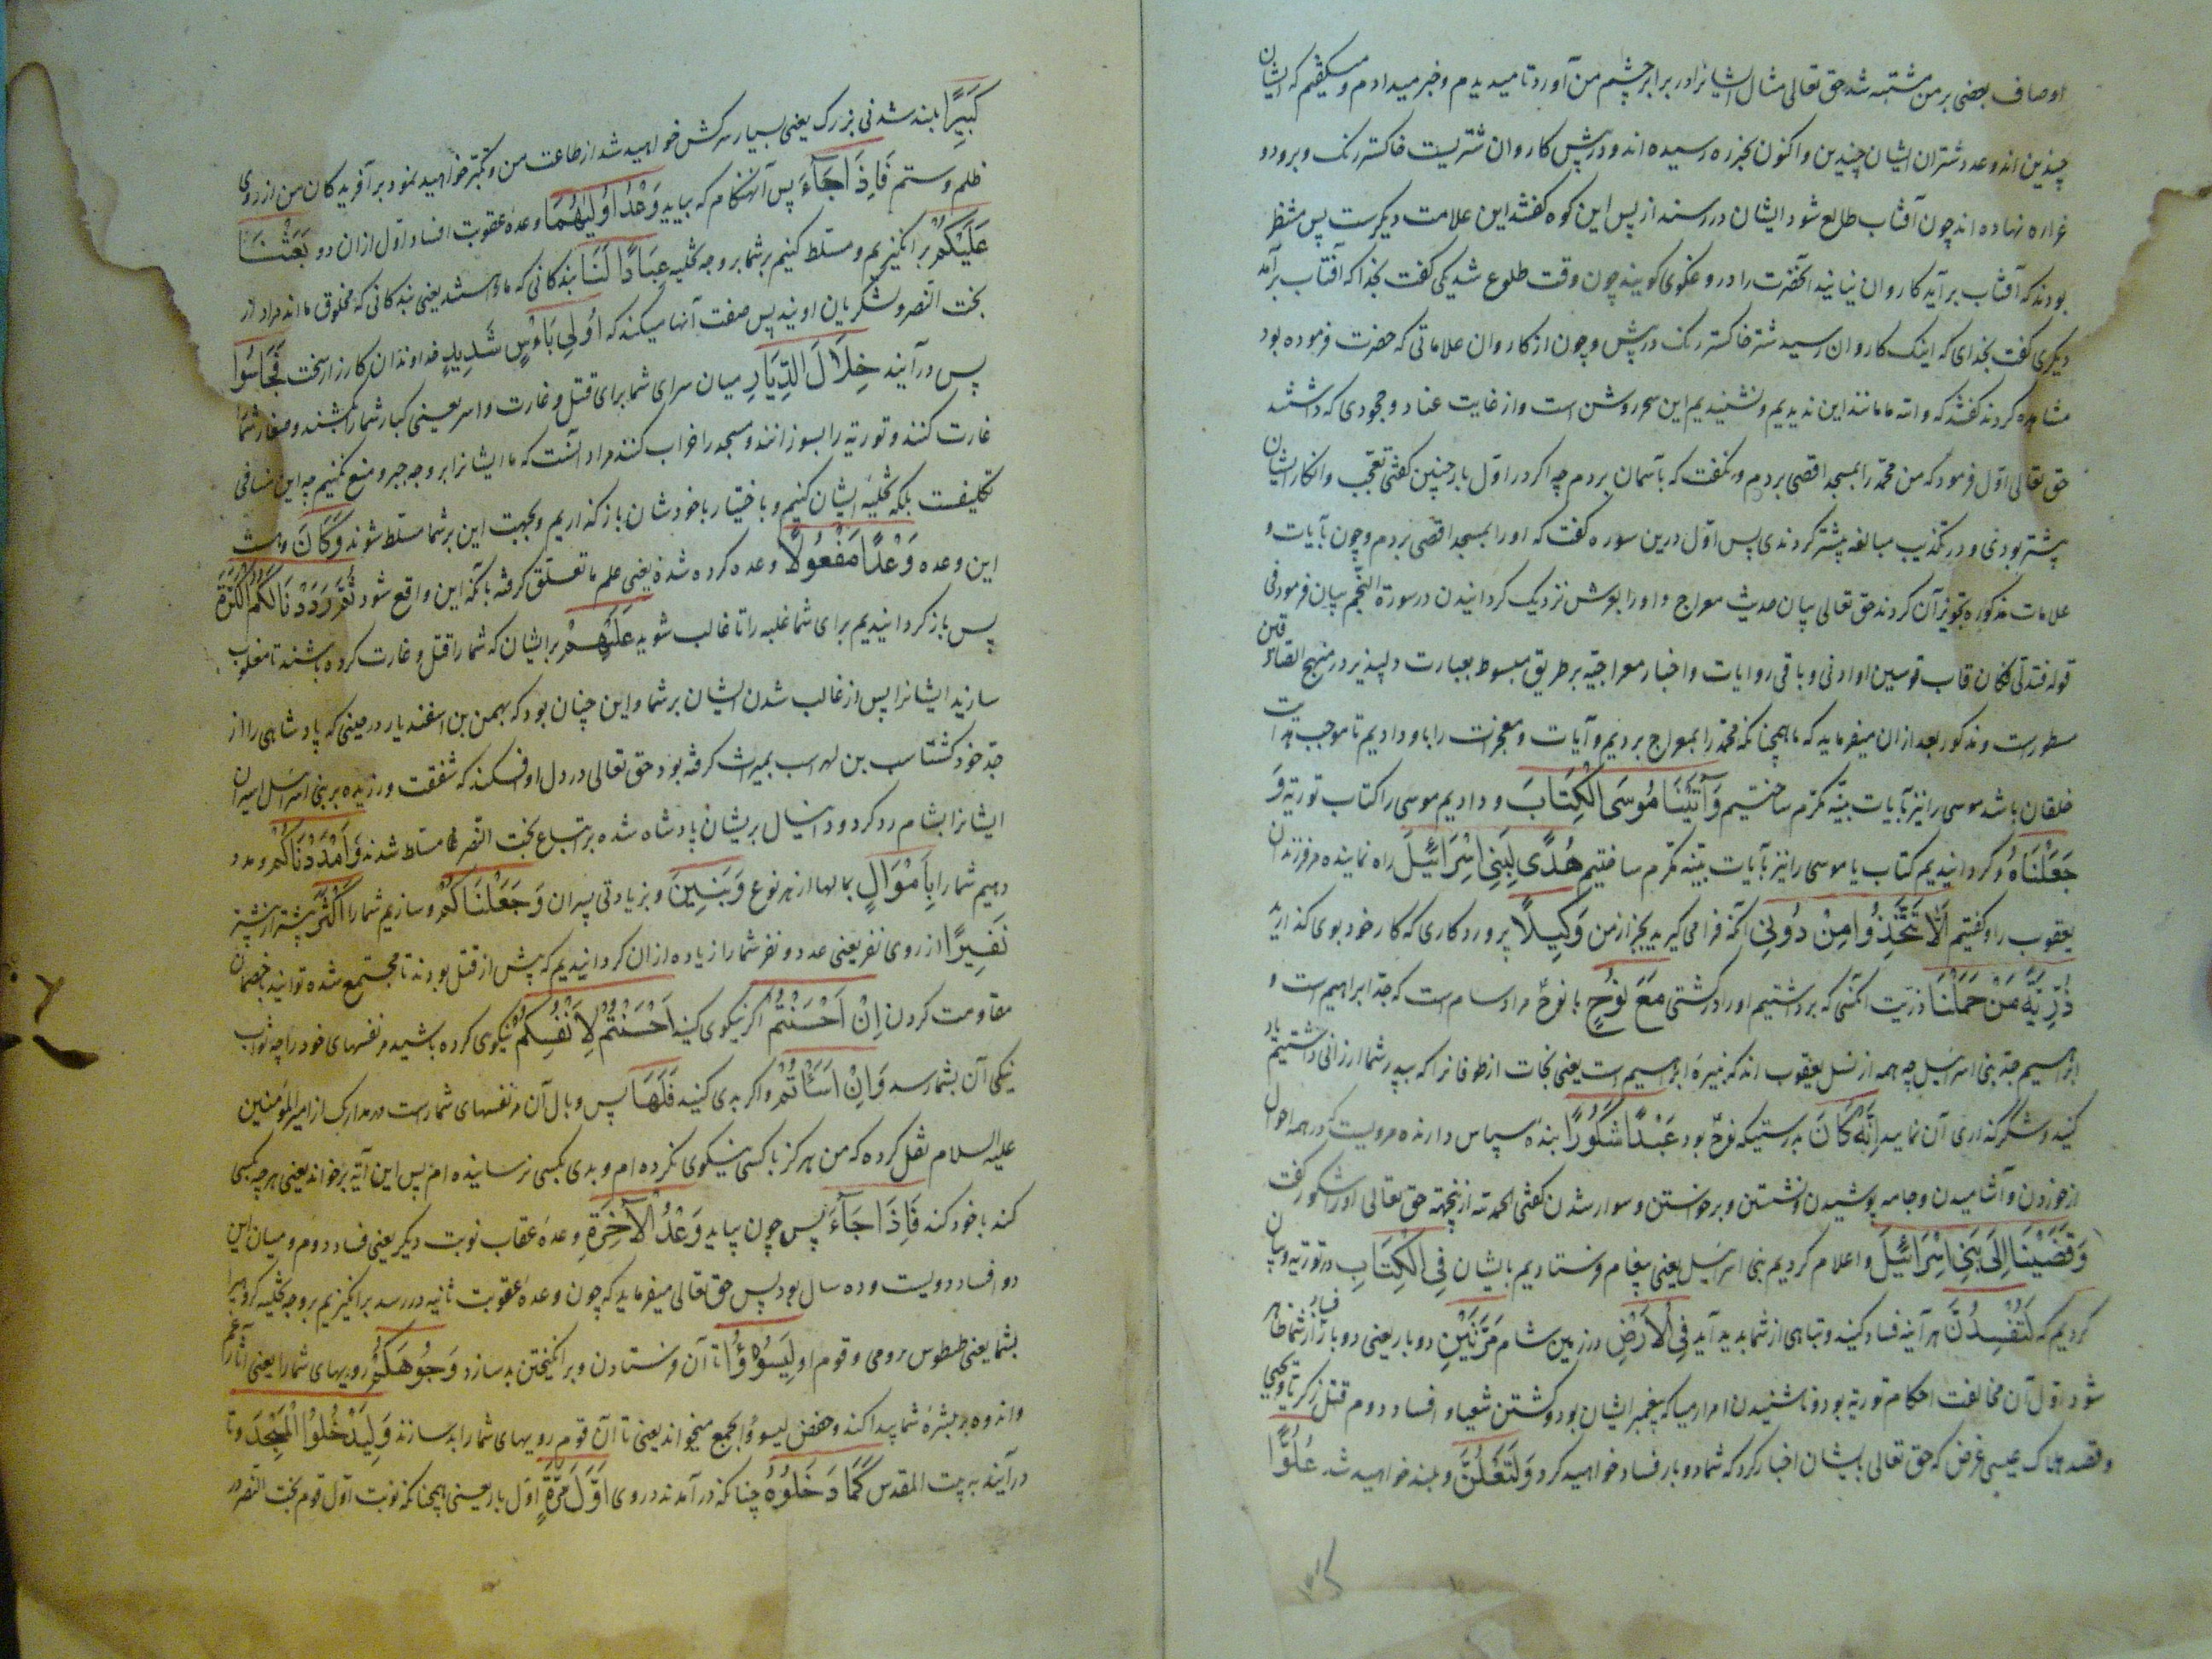 اوصاف بعضی بر من مشتبه شد حق تعالی مثال ایشانرا در برابر چشم من آورد تا میدیدم و خبر میدادم و میگفتم که ایشان
چندین اند و عدد شتران ایشان چندین و اکنون بخبزه رسیده اند و در پیش کاروان شتریست خاکستر رنک و برو دو
غراره نهاده اند چون آفتاب طالع شود ایشان در رسند از پس این کوه گفتند این علامت دیکرست پس منتظر
بودند که آفتاب برآید کاروان نیاید آنحضرت را دروغگوی گویند چون وقت طلوع شد یکی گفت بخدا که آفتاب برآمد
دیکری گفت بخدای که اینک کاروان رسید شتر خاکستر رنک در پیش و چون از کاروان علاماتی که حضرت فرموده بود
مشاهده کردند گفتند که والله ما مانند این ندیدیم و نشنیدیم این سحر روشن است و از غایت عناد و جحودی که داشتند
حق تعالی اول فرمود که من محمد را بمسجد اقصی بردم و نگفت که بآسمان بردم چه اگر در اول بار چنین گفتی تعجب و انکار ایشان
بیشتر بودی و در تکذیب مبالغه بیشتر کردندی پس اول درین سوره گفت که او را بمسجد اقصی بردم و چون بآیات و
علامات مذکوره تجویز آن کردند حق تعالی بیان حدیث معراج و او را بعرش نزدیک گردانیدن در سورة النجم بیان فرمود فی
قوله فتدلی فکان قاب قوسین او ادنی و باقی روایات و اخبار معراجیه بر طریق مبسوط بعبارت دلپذیر در منهج الصادقین
مسطورست و مذکور بعد از ان میفرماید که ما همچنانکه محمد را بمعراج بردیم و آیات و معجزات را باو دادیم تا موجب هدایت
خلقان باشد موسی را نیز بآیات بینه مکرم ساختیم وَآتَيْنَا مُوسَى الْكِتَابَ و دادیم موسی را کتاب توریة وَ
جَعَلْنَاهُ و گردانیدیم کتاب یا موسی را نیز بآیات بینه مکرم ساختیم هُدًى لِبَنِي اِسْرَائِيلَ راه نماینده مر فرزندان
یعقوب را و گفتیم اَلَّا تَتَّخِذُوا مِنْ دُونِي آنکه فرا می گیرید بجز از من وَكِيلًا پروردکاری که کار خود بوی گذارید
ذُرِّيَّةَ مَنْ حَمَلْنَا ذریت آنکسی که برداشتیم او را در کشتی مَعَ نُوحٍ با نوح مراد سام است که جد ابراهیم است و
ابراهیم جد بنی اسرائیل چه همه از نسل یعقوب اند که نبیره ابراهیم است یعنی نجات از طوفانرا که بپدر شما ارزانی داشتیم یاد
کنید و شکرگذاری آن نمایید اِنَّهُ كَانَ بدرستیکه نوح بود عَبْدًا شَكُورًا بنده سپاس دارنده مرویست که در همه احوال
از خوردن و آشامیدن و جامه پوشیدن و نشستن و برخواستن و سوار شدن گفتی الحمد لله ازینجهته حق تعالی او را شکور گفت
وَقَضَيْنَا اِلَى بَنِي اِسْرَائِيلَ و اعلام کردیم بنی اسرائیل یعنی پیغام فرستادیم بایشان فِي الْكِتَابِ در توریة و بیان
کردیم که لَتُفْسِدُنَّ هر آینه فساد کنید و تباهی از شما پدید آید فِي الْاَرْضِ در زمین شام مَرَّتَيْنِ دو بار یعنی دو بار فساد از شما ظاهر
شود اول آن مخالفت احکام توریة بود و ناشنیدن امر ارمیا که پیغمبر ایشان بود و کشتن شعیا و افساد دوم قتل زکریا و یحیی
و قصد هلاک عیسی غرض که حق تعالی بایشان اخبار کرد که شما دو بار فساد خواهید کرد وَلَتَعْلُنَّ و بلند خواهید شد عُلُوًّا
كَبِيرًا بلند شدنی بزرک یعنی بسیار سرکش خواهید شد از طاعت من و تکبر خواهید نمود بر آفریدکان من از روی
ظلم و ستم فَاِذَا جَآءَ پس آنهنگام که بیاید وَعْدُ اُولٰيهُمَا وعده عقوبت افساد اول از ان دو بَعَثْنَا
عَلَيْكُمْ بر انگیزیم و مسلط کنیم بر شما بر وجه تخلیه عِبَادًا لَنَا بندکانی که ما راستند یعنی بندکانی که مخلوق ما اند مراد از
بخت النصر و لشکریان اویند پس صفت آنها میکند که اُولِي بَاْسٍ شَدِيدٍ خداوندان کارزار سخت فَجَاسُوا
پس درآیند خِلَالَ الدِّيَارِ میان سرای شما برای قتل و غارت و اسر یعنی کبار شما را بکشند و صغار شما
غارت کنند و توریة را بسوزانند و مسجد را خراب کنند مراد آنست که ما ایشانرا بر وجه جبر و منع نکنیم چه این منافی
تکلیفست بلکه تخلیه ایشان کنیم و باختیار با خودشان بازگذاریم و بجهت این بر شما مسلط شوند وَكَانَ و هست
این وعده وَعْدًا مَفْعُولًا وعده کرده شده یعنی علم ما تعلق گرفته بآنکه این واقع شود ثُمَّ رَدَدْنَا لَكُمُ الْكَرَّةَ
پس بازگردانیدیم برای شما غلبه را تا غالب شوید عَلَيْهِمْ بر ایشان که شما را قتل و غارت کرده باشند تا مغلوب
سازید ایشانرا پس از غالب شدن ایشان بر شما و این چنان بود که بهمن بن اسفندیار در حینی که پادشاهی را از
جد خود کشتاسب بن لهراسب بمیراث گرفته بود حق تعالی در دل او افکند که شفقت ورزیده بر بنی اسرائیل اسیران
ایشانرا بشام رد کرد و دانیال بریشان پادشاه شده بر اتباع بخت النصر مسلط شدند وَاَمْدَدْنَاكُمْ و مدد
دهیم شما را بِاَمْوَالٍ بمالها از هر نوع وَبَنِينَ و بزیادتی پسران وَجَعَلْنَاكُمْ و سازیم شما را اَكْثَرَ بیشتر از پیشتر
نَفِيرًا از روی نفر یعنی عدد و نفر شما را زیاده از ان گردانیدیم که پیش از قتل بودند تا مجتمع شده توانید با خصمان
مقاومت کردن اِنْ اَحْسَنْتُمْ اگر نیکوی کنید اَحْسَنْتُمْ لِاَنْفُسِكُمْ نیکوی کرده باشید مر نفسهای خود را چه ثواب
نیکی آن بشما رسد وَاِنْ اَسَأْتُمْ و اگر بدی کنید فَلَهَا پس وبال آن مر نفسهای شما راست در مدارک از امیر المؤمنین
علیه السلام نقل کرده که من هرگز با کسی نیکوی نکرده ام و بدی بکسی نرسانیده ام پس این آیه برخواند یعنی هر چه کسی
کند با خود کند فَاِذَا جَآءَ پس چون بیاید وَعْدُ الْاٰخِرَةِ وعده عقاب نوبت دیگر یعنی فساد دوم و میان این
دو افساد دویست و ده سال بود پس حق تعالی میفرماید که چون وعده عقوبت ثانیه در رسد برانگیزیم بر وجه تخلیه گروهیرا
بشما یعنی ططوس رومی و قوم او لِيَسُوْؤُا تا آن فرستادن و برانگیختن بد سازد وُجُوهَكُمْ رویهای شما را یعنی آثار غم
و اندوه بر بشره شما پیدا کند و حفص لیسوؤا بجمع میخواند یعنی تا آن قوم رویهای شما را بد سازند وَلِيَدْخُلُوا الْمَسْجِدَ و تا
درآیند به بیت المقدس كَمَا دَخَلُوهُ چنانکه درآمدند در وی اَوَّلَ مَرَّةٍ اول بار یعنی همچنانکه نوبت اول قوم بخت النصر در